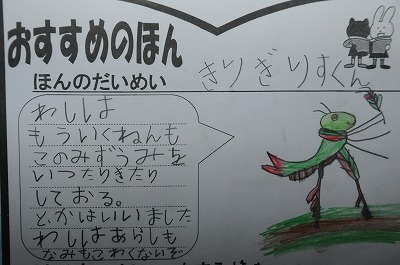 おすすめのほん
ほんのだいめい
きりぎりすくん
わしは
もういくねんも
このみずうみを
いつたりきたり
しておる。
と、かはいいました
わしはあらしも
なみもこわくないぞ